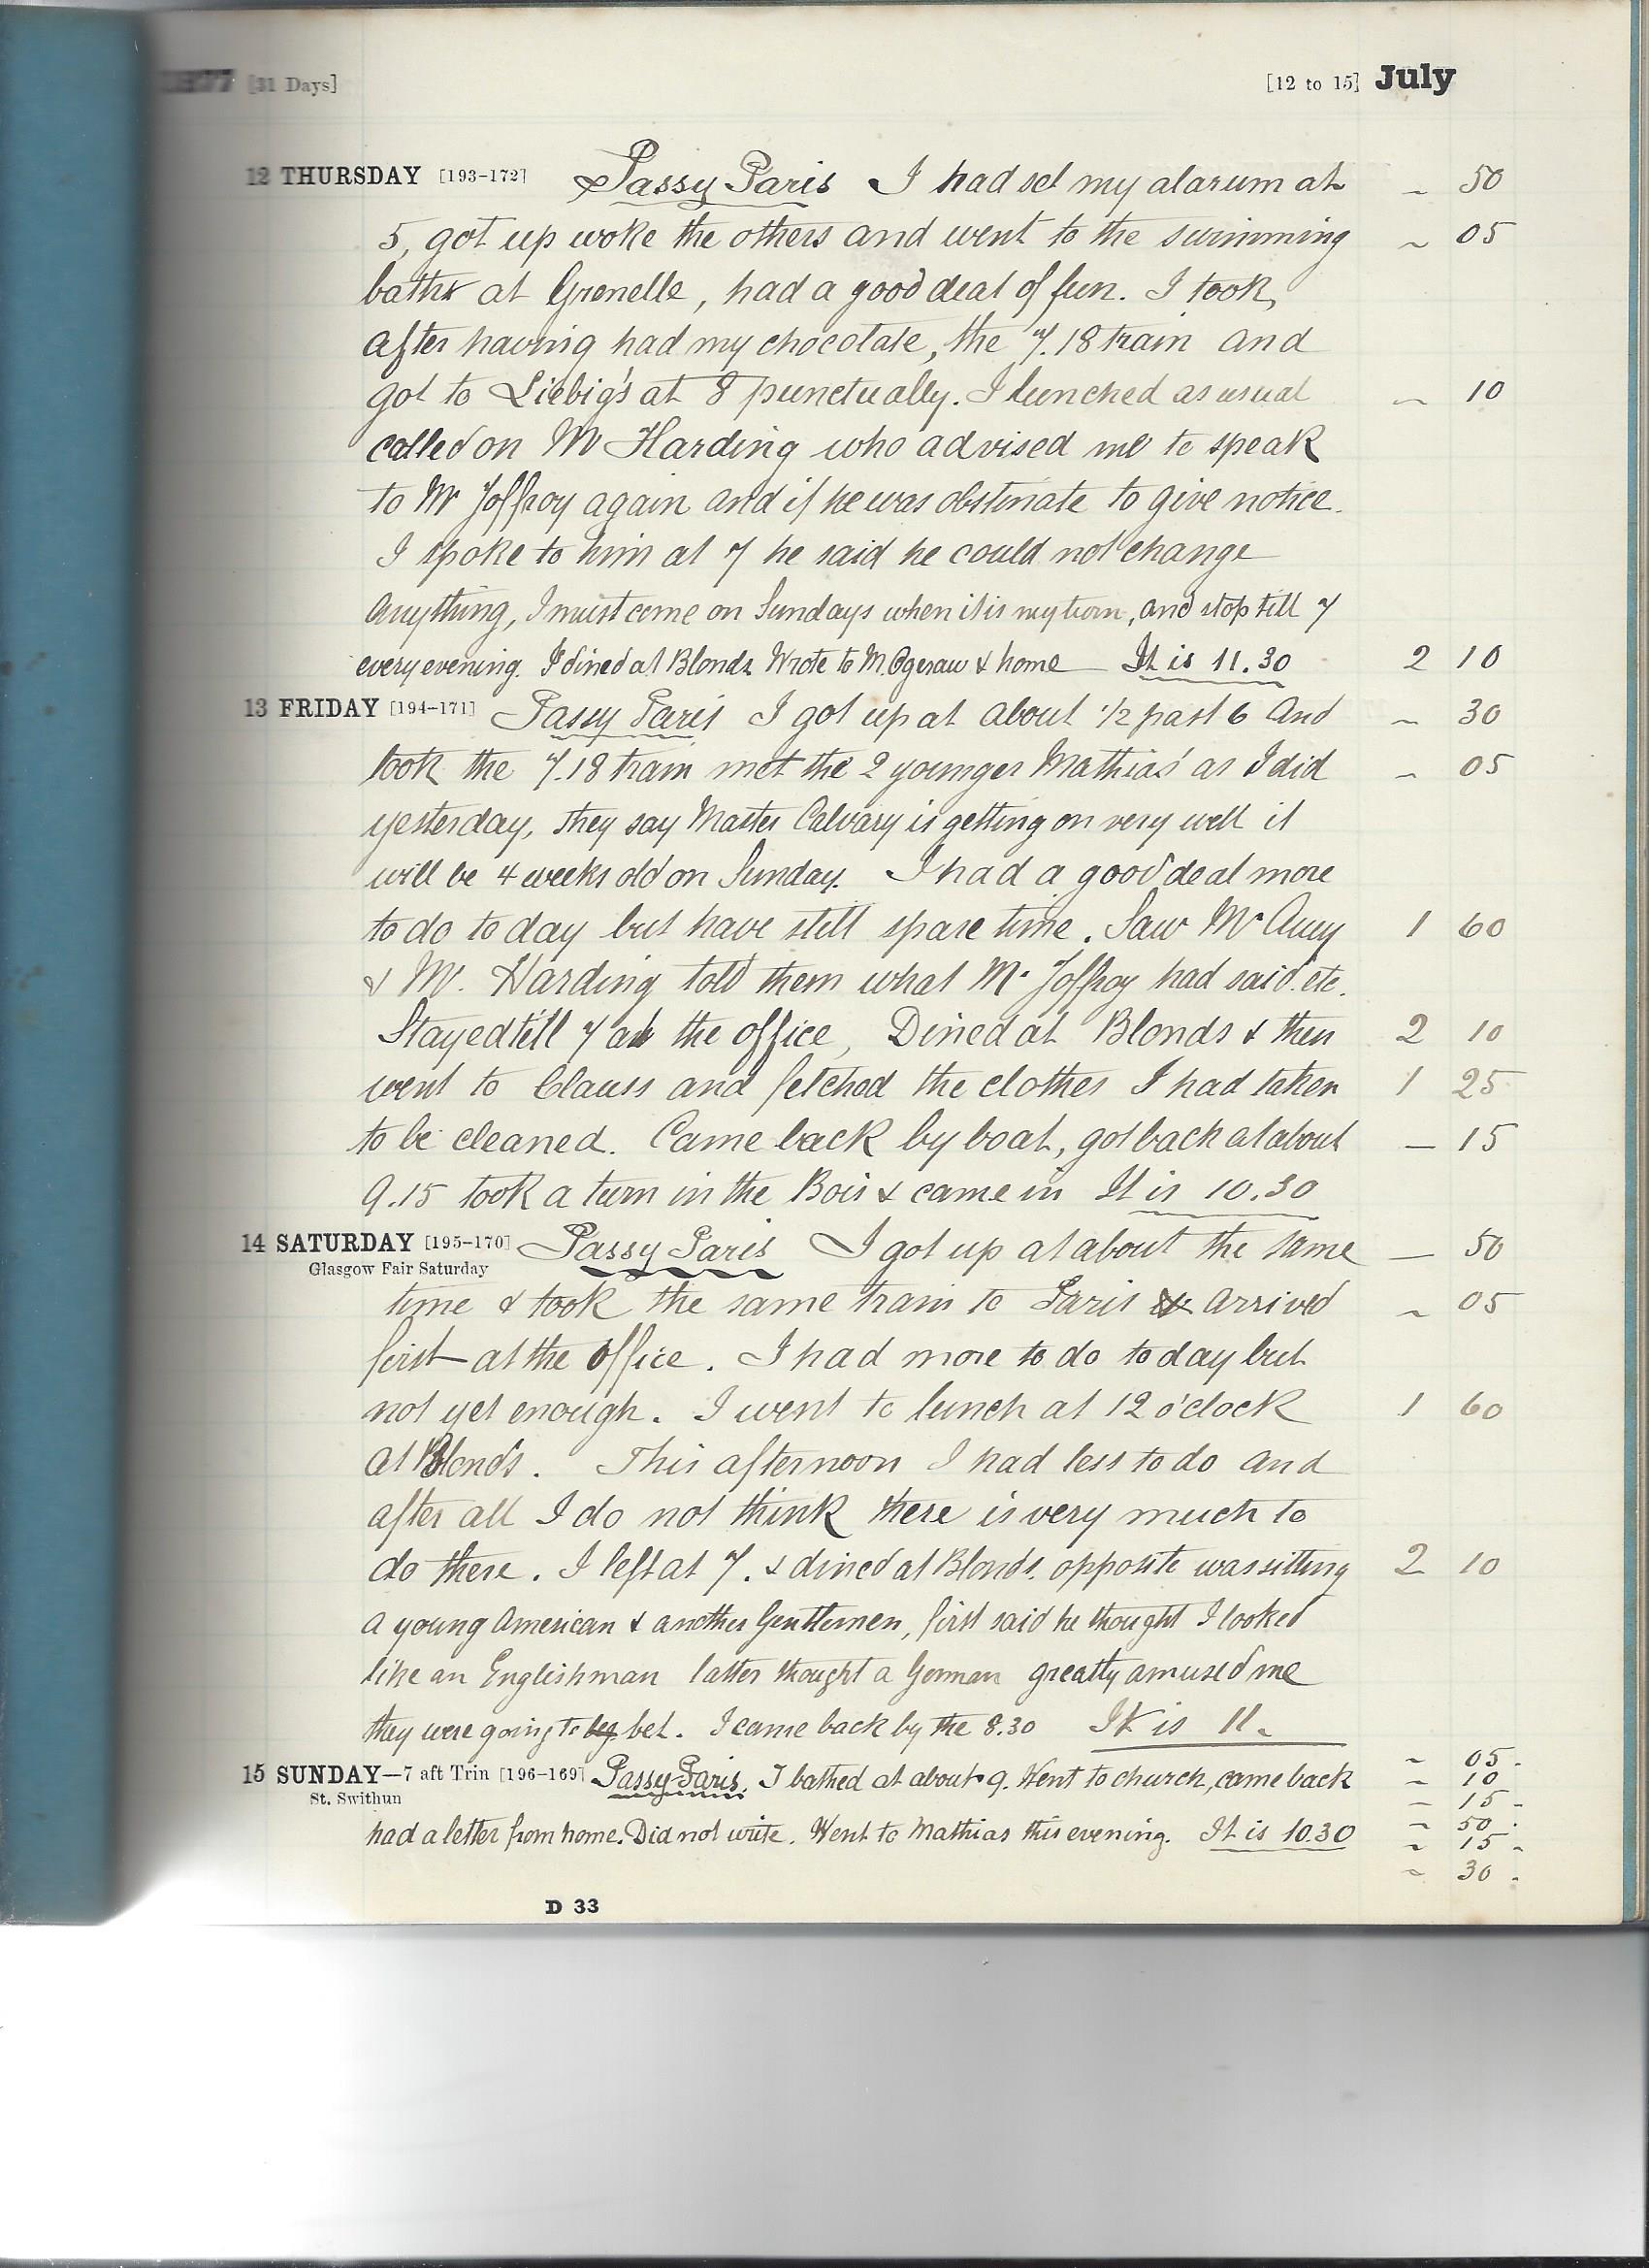 1877 [31 Days] [12 to 15] July
12 THURSDAY [193-172] Passy Paris I had set my alarum at ~ 50
5, got up woke the others and went to the swimming ~ 05
baths at Grenelle, had a good deal of fun. I took,
after having had my chocolate, the 7.18 train and
got to Liebig's at 8 punctually. I lunched as usual ~ 10
called on Mr Harding who advised me to speak
to Mr Joffroy again and if he was obstinate to give notice.
I spoke to him at 7 he said he could not change
anything, I must come on Sundays when it is my turn, and stop till 7
every evening. I dined at Blonds. Wrote to M. & home It is 11.30 2 10
13 FRIDAY [194-171] Passy Paris I got up at about 1/2 past 6 and ~ 30
took the 7.18 train met the 2 younger Mathias' as I did ~ 05
yesterday, they say Master Calvary is getting on very well it
will be 4 weeks old on Sunday. I had a good deal more
to do to day but have still spare time. Saw Mr 1 60
& Mr. Harding told them what Mr Joffroy had said. etc.
Stayed till 7 at the office, Dined at Blonds & then 2 10
went to Clauss and fetched the clothes I had taken 1 25
to be cleaned. Came back by boat, got back at about — 15
9.15 took a turn in the Bois & came in It is 10.30
14 SATURDAY [195-170] Passy Paris I got up at about the same — 50
Glasgow Fair Saturday
time & took the same train to Paris & arrived ~ 05
first at the office. I had more to do to day but
not yet enough. I went to lunch at 12 o'clock 1 60
at Blond's. This afternoon I had less to do and
after all I do not think there is very much to
do there. I left at 7. & dined at Blonds. opposite was sitting 2 10
a young American & another Gentlemen, first said he thought I looked
like an Englishman latter thought a German greatly amused me
they were going to beg bet. I came back by the 8.30 It is 11.
15 SUNDAY—7 aft Trin [196-169] Passy Paris. I bathed at about 9. Went to church, came back ~ 05.
St. Swithun ~ 10
— 15 -
had a letter from home. Did not write. Went to Mathias this evening. It is 10.30 ~ 50.
~ 15 -
~ 30.
D 33